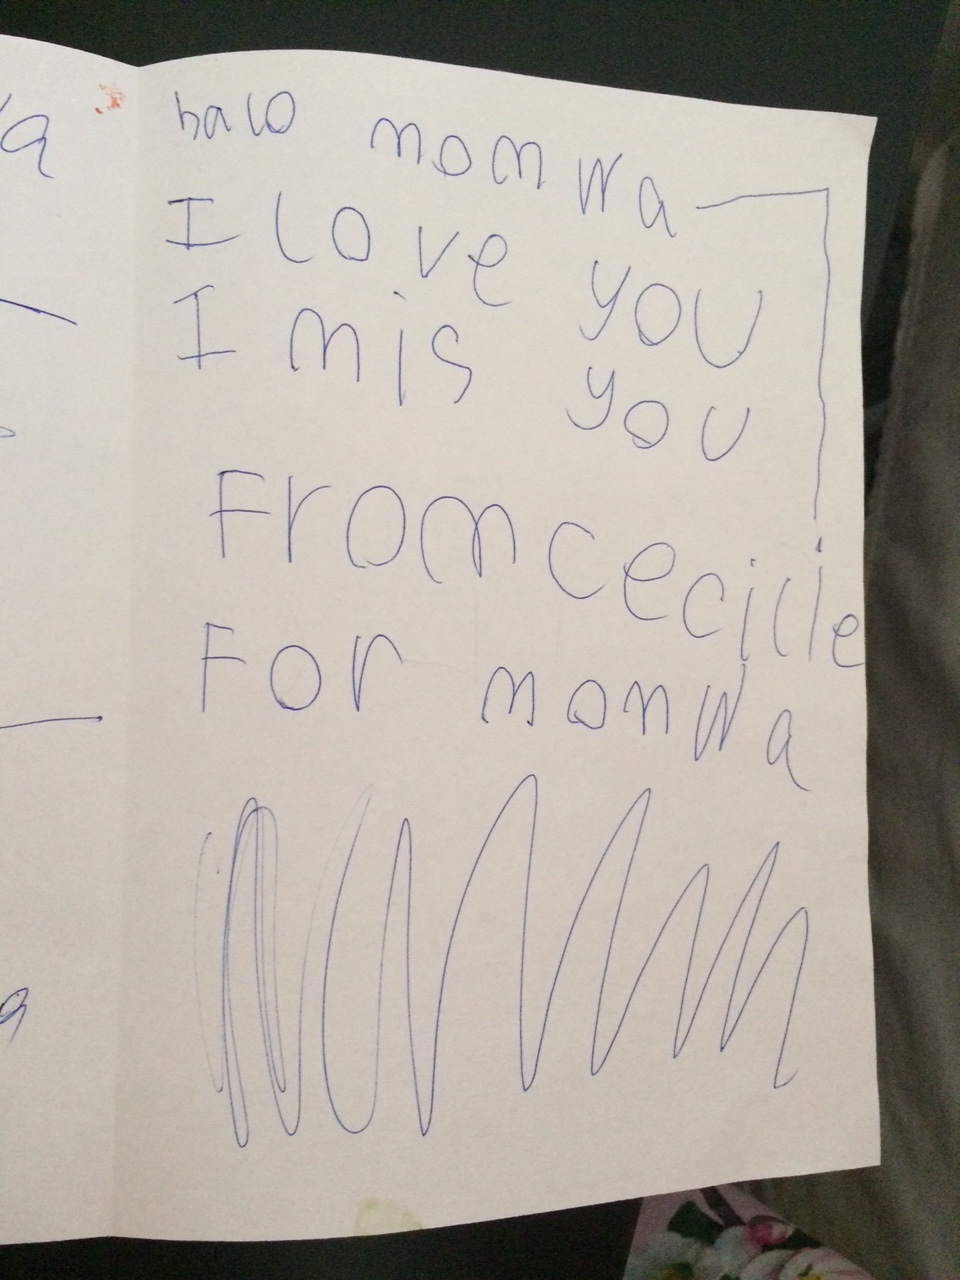 halo momwa
I love you
I mis you
From cecilie
For monwa